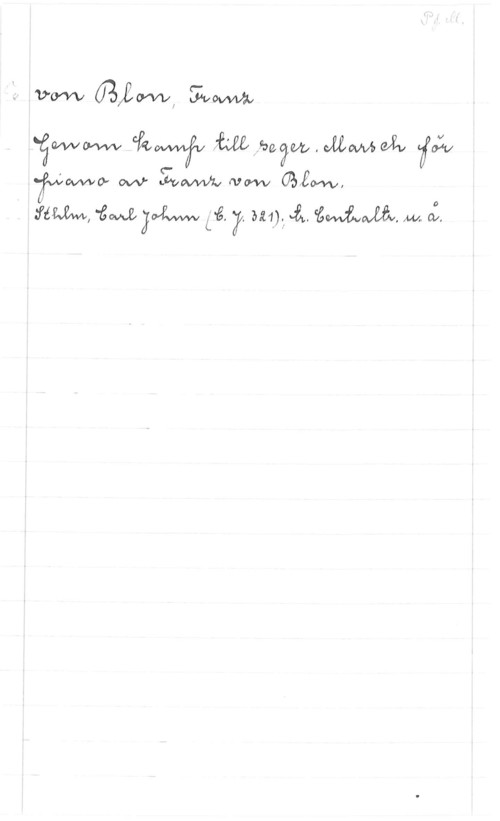 Pf ell.
von Blon, Franz
Genom kamp till seger. Marsch för
piano av Franz von Blon.
Sthlm, Carl Johnn (C. J. 321); tr. Centraltr. u. å.